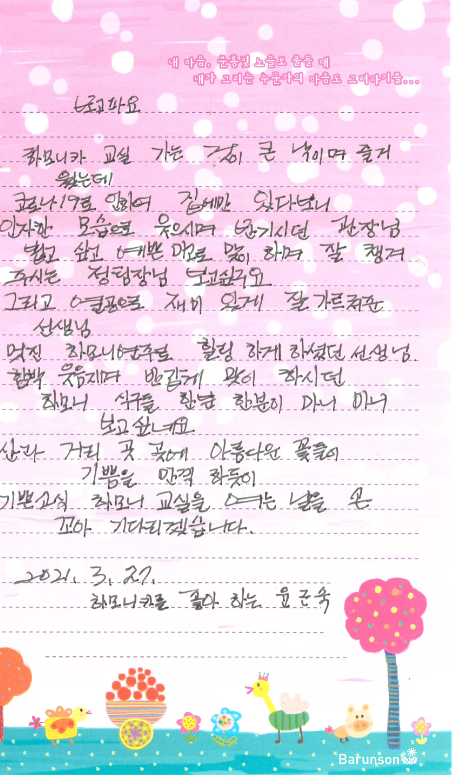 내 마음, 분홍빛 노을로 물들 때
내가 그리는 누군가의 마음도 그리하기를...
보고파요
하모니카 교실 가는 것이 큰 낙이며 즐거
웠는데
코로나19로 인하여 집에만 있다보니
인자한 모습으로 웃으시며 반기시던 관장님
밝고 싶고 예쁜 맘으로 맞이 하며 잘 챙겨
주시는 정팀장님 보고싶구요
그리고 열공으로 재미 있게 잘 가르쳐준
선생님
멋진 하모니연주로 힐링 하게 하셨던 선생님
함박 웃음지며 반갑게 맞이 하시던
하모니 식구들 한분 한분이 마니 마니
보고싶네요
산과 거리 곳 곳에 아름다운 꽃들이
기쁨을 만끽 하듯이
기쁜소식 하모니 교실을 여는 날을 손
꼬아 기다리겠습니다.
2021. 3. 27.
하모니카를 좋아 하는 윤근숙
Barunson